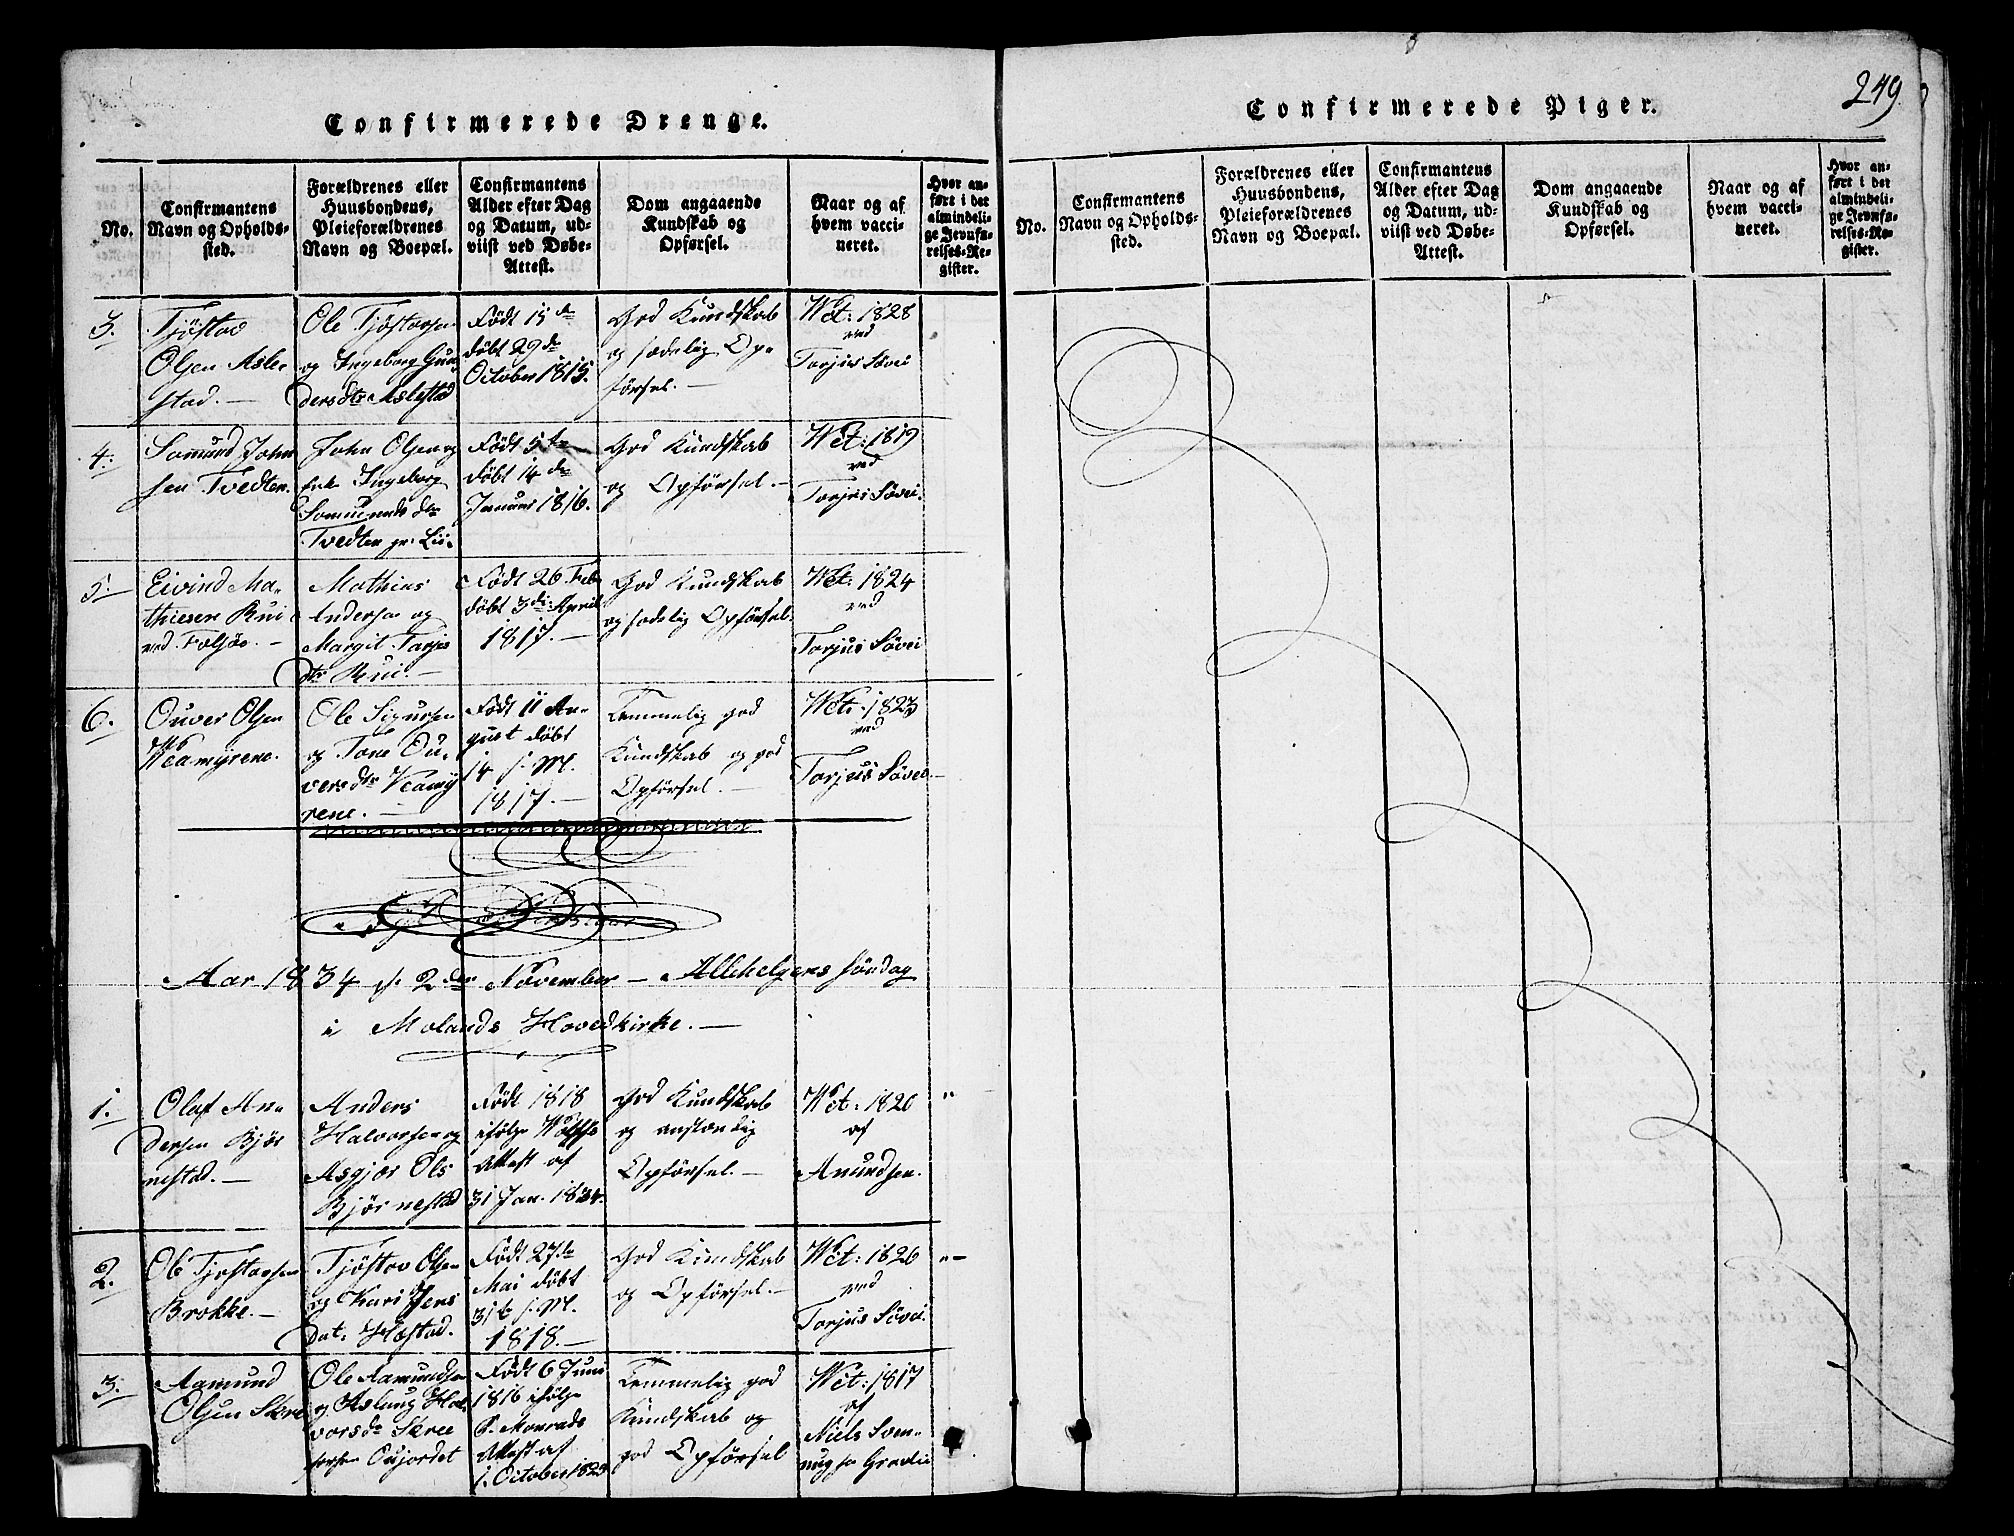 Confirmerede Drenge.
No.
Confirmantens
Navn og Opholds-
sted.
Forældrenes eller
Huusbondens,
Pleieforældrenes
Navn og Boepæl.
Confirmantens
Alder efter Dag
og Datum, ud-
viist ved Døbe-
Attest.
Dom angaaende
Kundskab og
Opførsel.
Naar og af
hvem vacci-
neret.
Hvor an-
ført i det
almindeli-
ge Jevnfø-
relses-Re-
gister.
3.
Tjøstov
Olsen Asle-
stad. —
Ole Tjøstovsen
og Ingeborg Gun-
dersdtr Aslestad
Født 15de
døbt 29de
October 1815.
God Kundskab
og sædelig Op-
førsel. —
Vct: 1828
ved
Torjus Søvei
4.
Somund John
sen Tvedten.
John Olsen og
Ingeborg
Somunds dtr
Tvedten
Født 5te
døbt 14de
Januar 1816.
God Kundskab
og Opførsel. —
Vct: 1819
ved
Torjus Søvei.
5.
Eivind Ma-
thiesen Rui
ved Folsøe. —
Mathias
Andersen og
Margit Tarjes
dtr Rui. —
Født 26 Feb
døbt 3di April
1817. —
God Kundskab
og sædelig Opførsel.
Vct: 1824
ved
Torjus Søvei
6.
Ouver Olsen
Veamyrene.
Ole Sigursen
og Tone Ou-
versdtr Veamy
rene. —
Født 11 Au-
gust døbt
14 s. M.
1817. —
Temmelig god
Kundskab og god
Opførsel. —
Vct: 1823
ved
Torjus Søvei —
Aar 1834 d. 2den November — Allehelgens Søndag
i Molands Hovedkirke. —
1.
Olaf An-
dersen Bjør
nestad. —
Anders
Halvorsen og
Asgjær Ols
Bjørnestad
Født 1818
ifølge
Attest af
31 Jan. 1834.
God Kundskab
og anstændig
Opførsel. —
Vct: 1820
af
Anundsen.
"
2.
Ole Tjøstovsen
Brokke. —
Tjøstov Olsen
og Kari Jens
dat. Hæstad.
Født 27de
Mai døbt
31t s. M.
1818. —
God Kundskab
og Opførsel. —
Vct: 1820
ved
Torjus Søvei.
" —
3.
Aamund
Olsen Skree
Ole Aamundsen
og Aslaug Hal-
vorsdr Skree
Oujordet
Født 6 Juni
1816 ifølge
P. Monrads
Attest af
1. October 1829
Temmelig god
Kundskab og
god Opførsel
Vct: 1817
af
Niels Sven-
nugsen Gravlie
249.
Confirmerede Piger.
No.
Confirmantens
Navn og Opholds-
sted.
Forældrenes eller
Huusbondens,
Pleieforældrenes
Navn og Boepæl.
Confirmantens
Alder efter Dag
og Datum, ud-
viist ved Døbe-
Attest.
Dom angaaende
Kundskab og
Opførsel.
Naar og af
hvem vacci-
neret.
Hvor an-
ført i det
almindeli-
ge Jevnfø-
relses-Re-
gister.